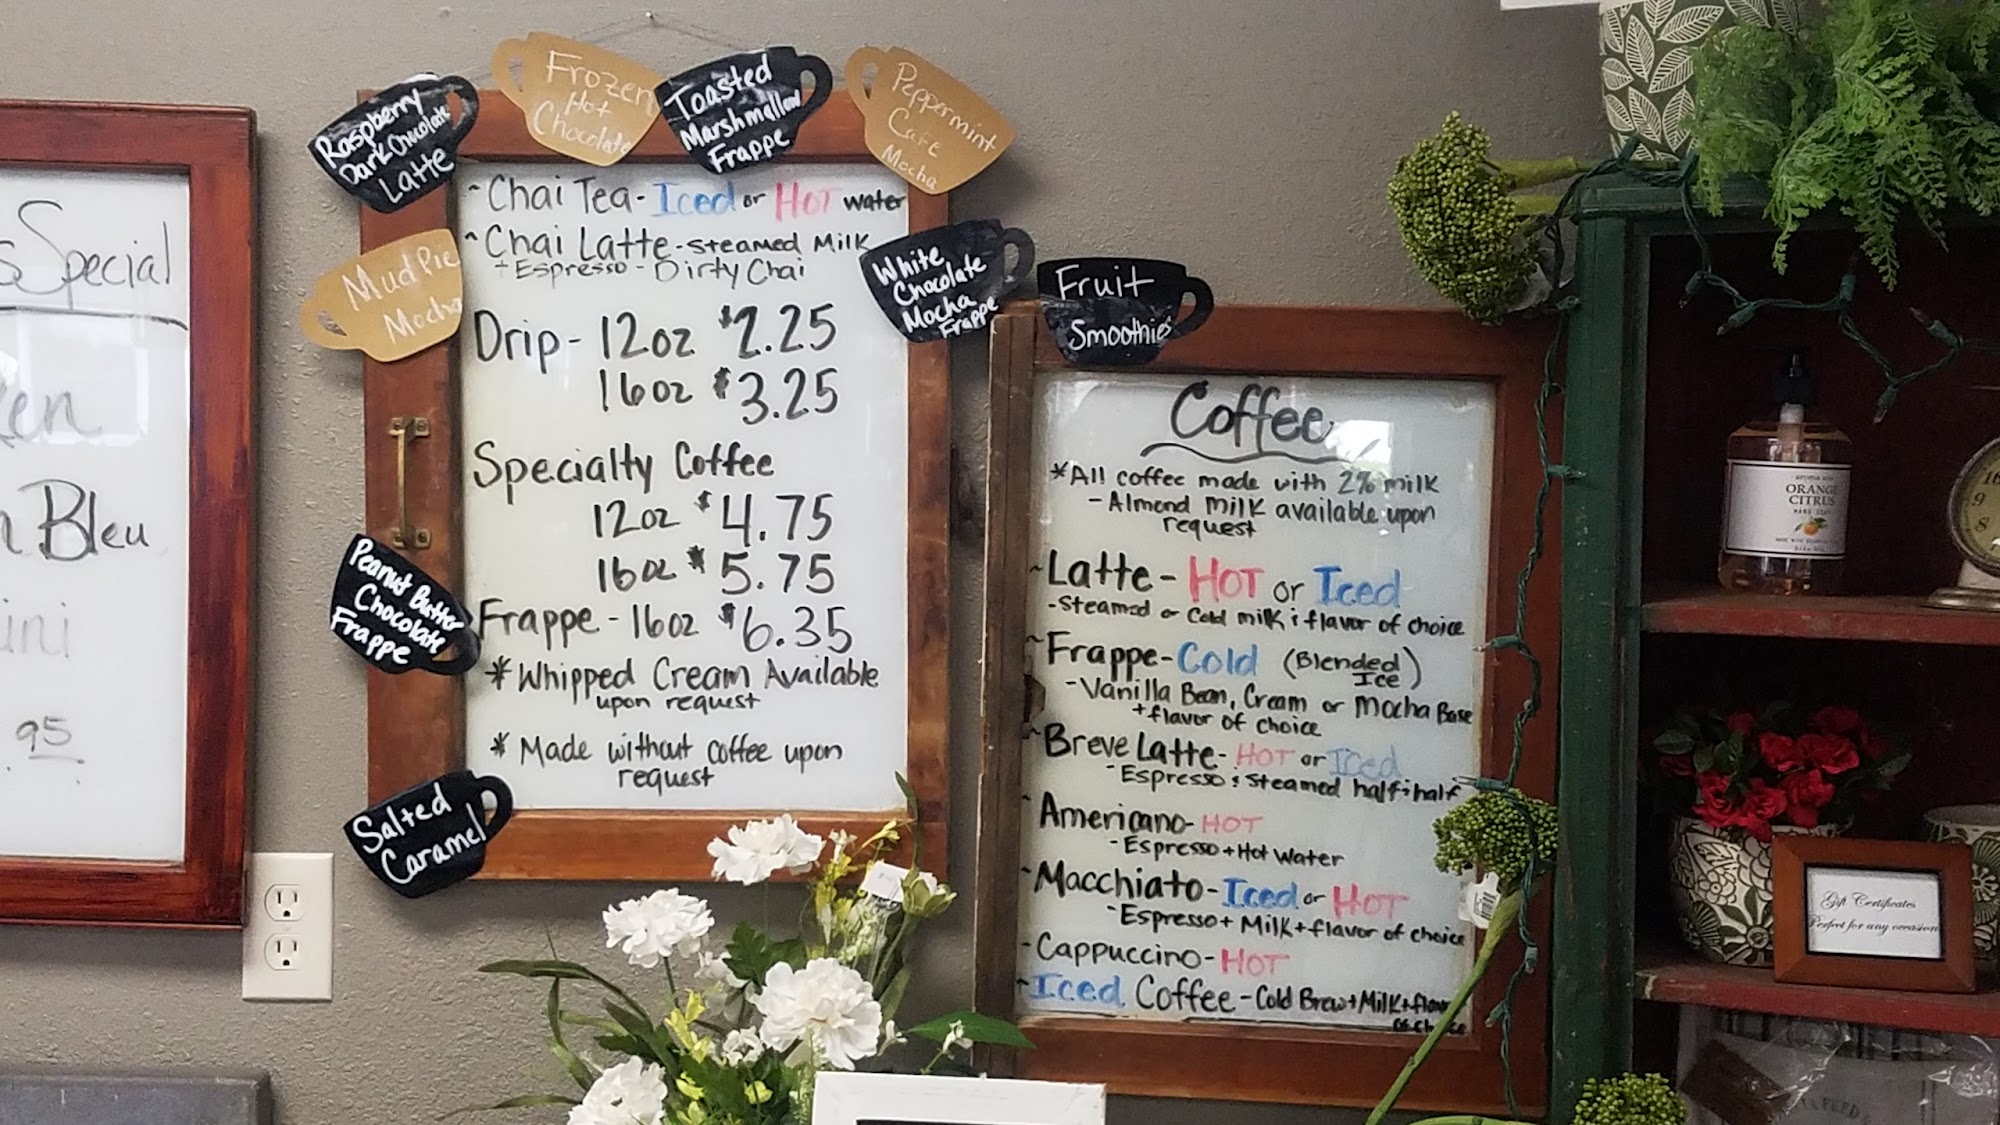 Special
Bleu
95
Raspberry
Dark Chocolate
Latte
Frozen
Hot
Chocolate
Toasted
Marshmallow
Frappe
Peppermint
Cafe
Mocha
Mud Pie
Mocha
White
Chocolate
Mocha
Frappe
Fruit
Smoothies
Peanut Butter
Chocolate
Frappe
Salted
Caramel
~Chai Tea-Iced or HOT water
~Chai Latte-steamed Milk
+Espresso-Dirty Chai
Drip- 12oz $2.25
16oz $3.25
Specialty Coffee
12oz $4.75
16oz $5.75
Frappe-16oz $6.35
*Whipped Cream Available
upon request
*Made without coffee upon
request
Coffee
*All coffee made with 2% milk
-Almond Milk available upon
request
~Latte-HOT or Iced
-Steamed or Cold milk & flavor of choice
~Frappe-Cold (Blended
Ice)
-Vanilla Bean, Cream or Mocha Base
+flavor of choice
~Breve Latte-HOT or Iced
-Espresso & Steamed half+half
~Americano-HOT
-Espresso+Hot Water
~Macchiato-Iced or HOT
-Espresso+Milk+flavor of choice
~Cappuccino-HOT
~Iced Coffee-Cold Brew+Milk+flavor
of choice
ORANGE
CITRUS
HAND SOAP
10
9
8
Gift Certificates
Perfect for any occasion